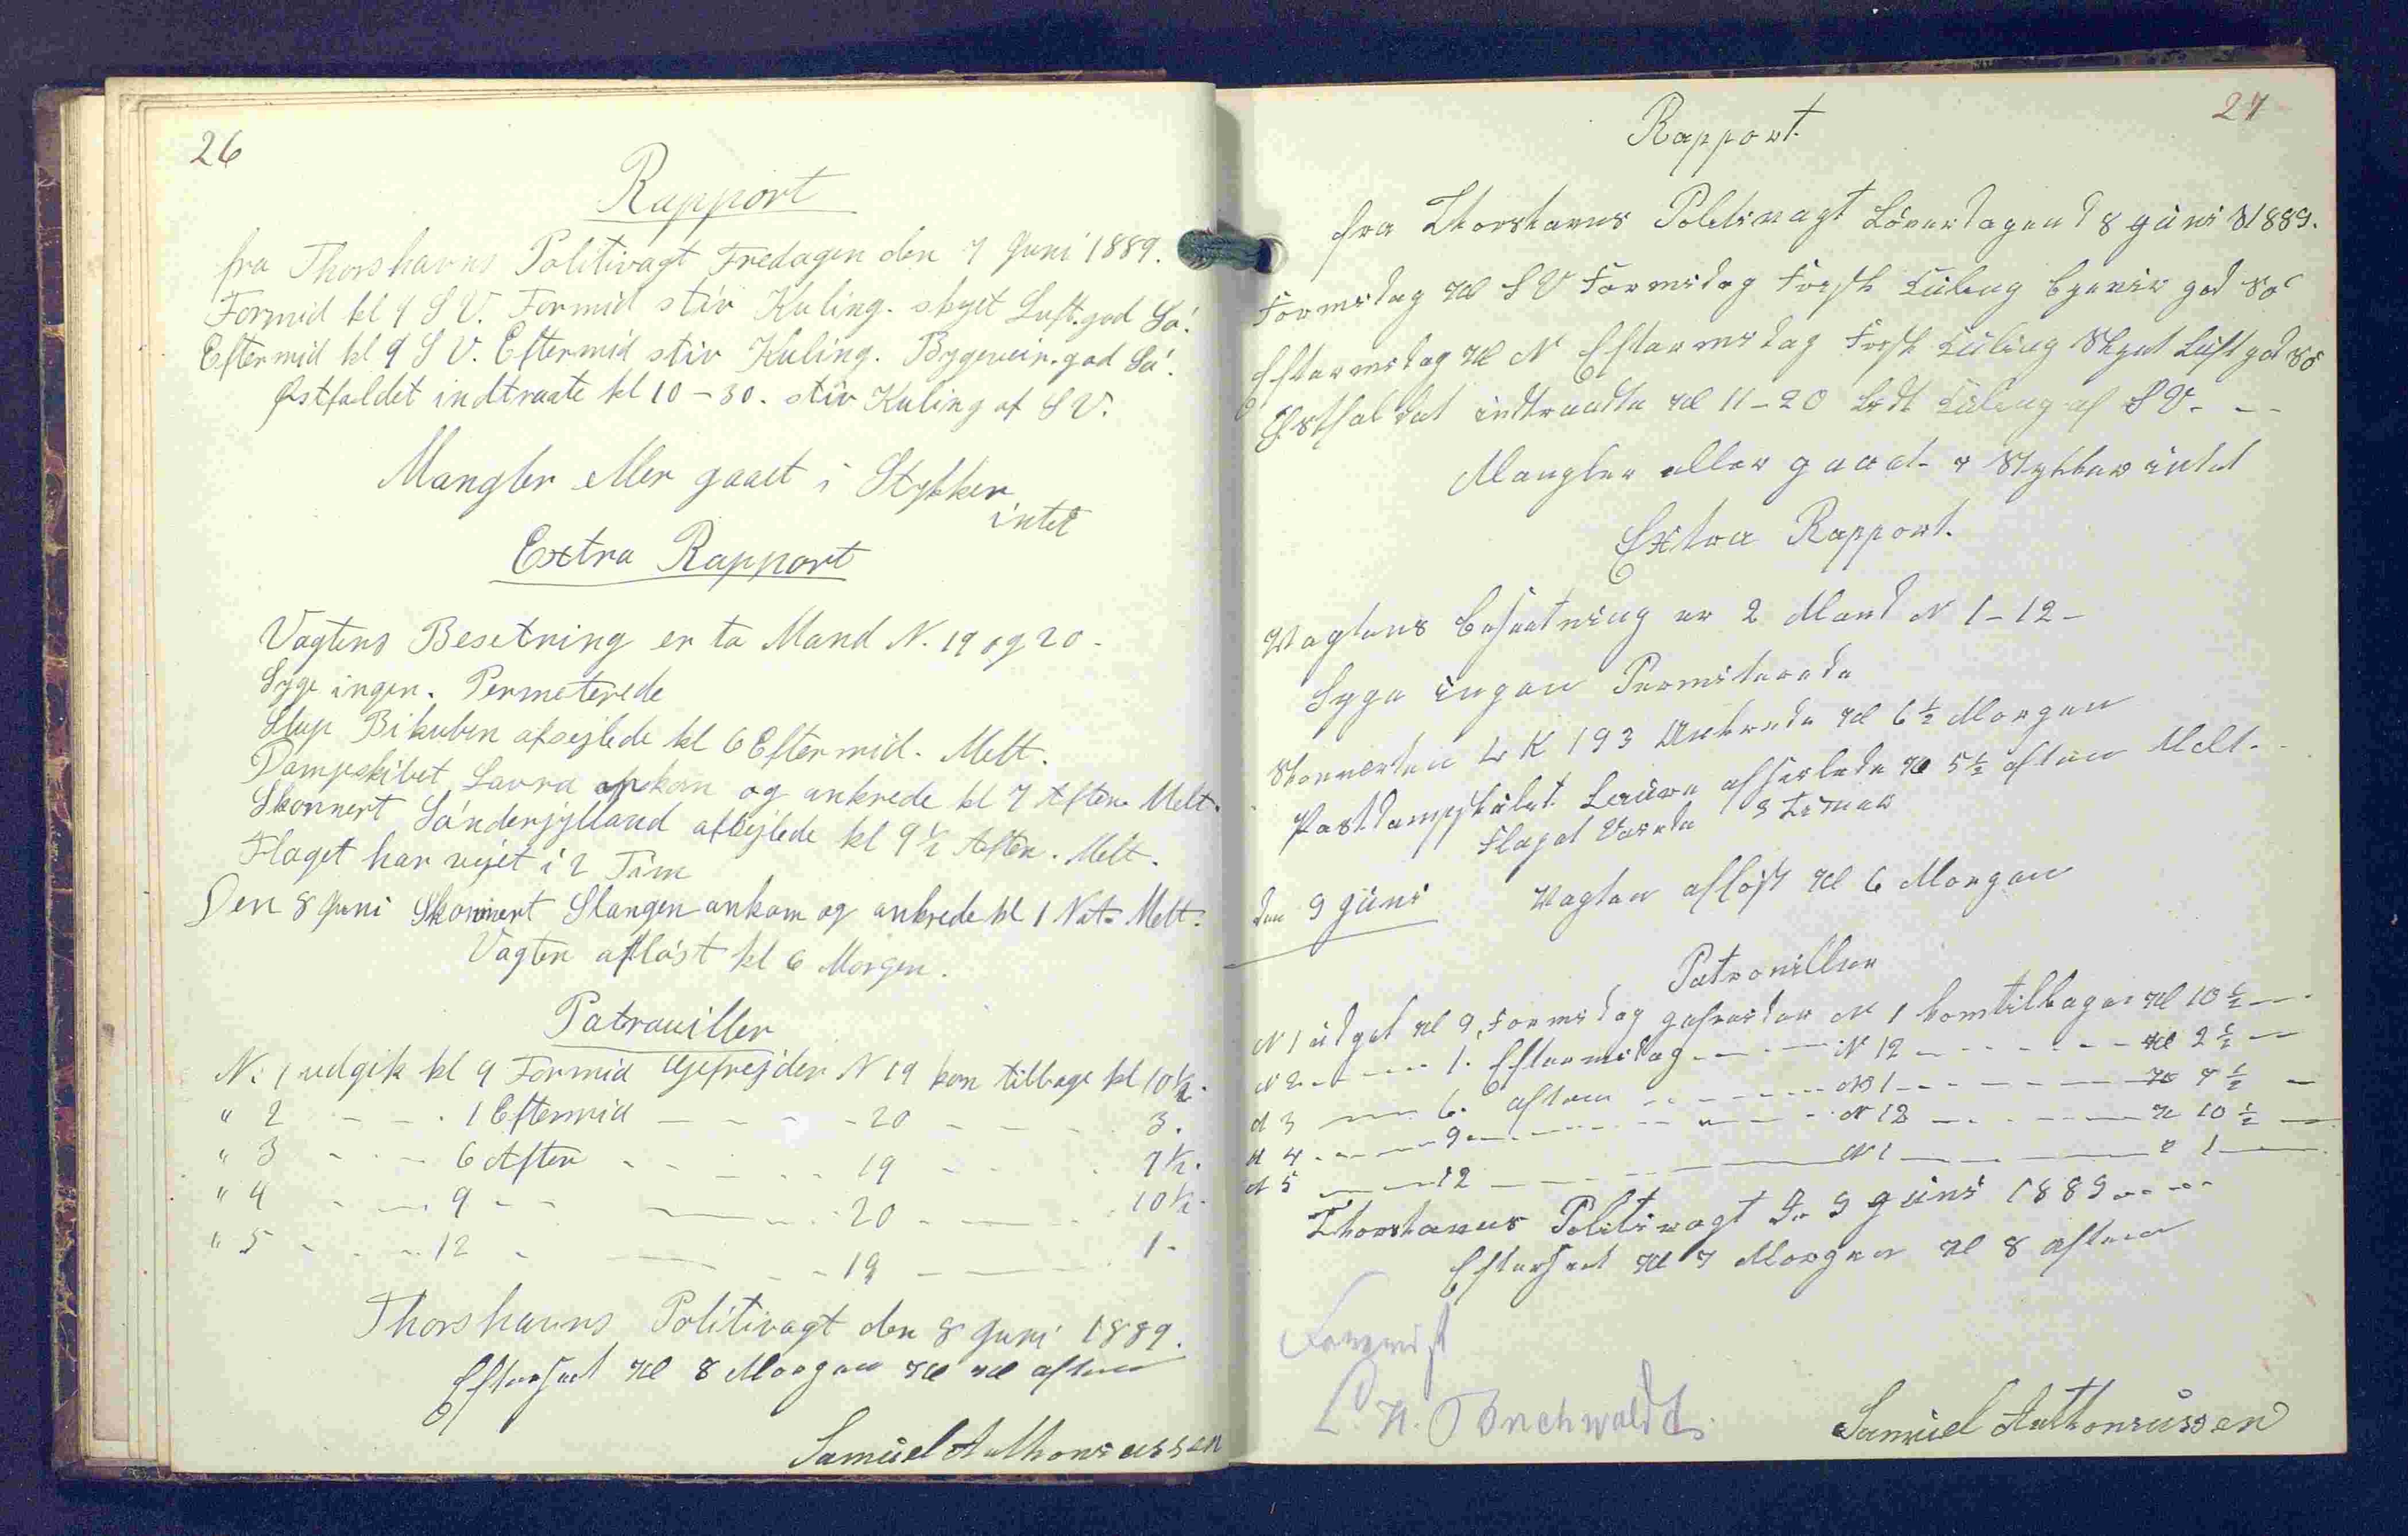 26
Rapport
fra Thorshavns Politivagt Fredagen den 7 Juni 1889.
Formid kl 9 S V. Formid stiv Kuling. skyet Luft. god Sö.
Eftermid kl 9 S V. Eftermid stiv Kuling. Bygeveir. god Sö.
Østfaldet indtraate kl 10-30. stiv Kuling af S V.
Mangler eller gaaet i Stykker
intet
Extra Rapport
Vagtens Besetning er to Mand N. 19 og 20-
Syge ingen. Permeterede
Slup Bikuben afsejlede kl 6 Eftermid. Melt.
Dampskibet Laura ankom og ankrede kl 7 Aften. Melt.
Skonnert Sönderjylland afsejlede kl 9½ Aften. Melt.
Flaget har vejet i 2 Tim
Den 8 Juni Skonnert Slangen ankom og ankrede kl 1 Nat. Melt.
Vagten aflöst kl 6 Morgen.
Patrouiller
N. 1 udgik kl 9 Formid Gefrejder N 19 kom tilbage kl 10½.
" 2 - - . 1 Eftermid - - - - 20 - - - - 3.
" 3 - - - 6 Aften - - - - 19 - - - 7½.
" 4 - - - 9 - - - - - 20 - - - 10½.
" 5 - - - 12 - - - - 19 - - - 1.
Thorshavns Politivagt den 8 Juni 1889.
Efterseet kl 8 Morgen kl aften
Samuel Anthoniussen
27
Rapport.
fra Thorshavns Politivagt Löverdagen d 8 Juni 1889.
Formidag kl S V Formidag Frisk Kuling bgevir god Sö
Eftermidag kl N Eftermidag Frisk Kuling Skyet Luft god Sö
Østfaldet indtraadte kl 11-20 Kuling af S V. - -
Mangler eller gaaet i Stykker intet
Extra Rapport.
Vagtens besætning er 2 Mand N 1-12-
Syge ingen Permiterede
Skonnerten L K 193 Ankrede kl 6½ Morgen
Postdampskibet Laura afseilede kl 5½ aften Melt.
Flaget Vaiede 3 Timer
den 9 Juni Vagten aflöst kl 6 Morgen
Patrouiller
N 1 udget kl 9, Formidag gefreider N 1 komtilbage kl 10½ -
N 2 - - - 1. Eftermidag - - - N 12 - - - - kl 2½ -
N 3 - - 6. aften - - - - N 1 - - - - kl 7½ -
N 4 - - - 9 - - - - - N 12 - - - - kl 10½ -
N 5 - - 12 - - - - N 1 - - - - " 1 -
Thorshavns Politivagt d. 9 Juni 1889 - - -
Efterseet kl 7 Morgen kl 8 aften
Samuel Anthoniussen